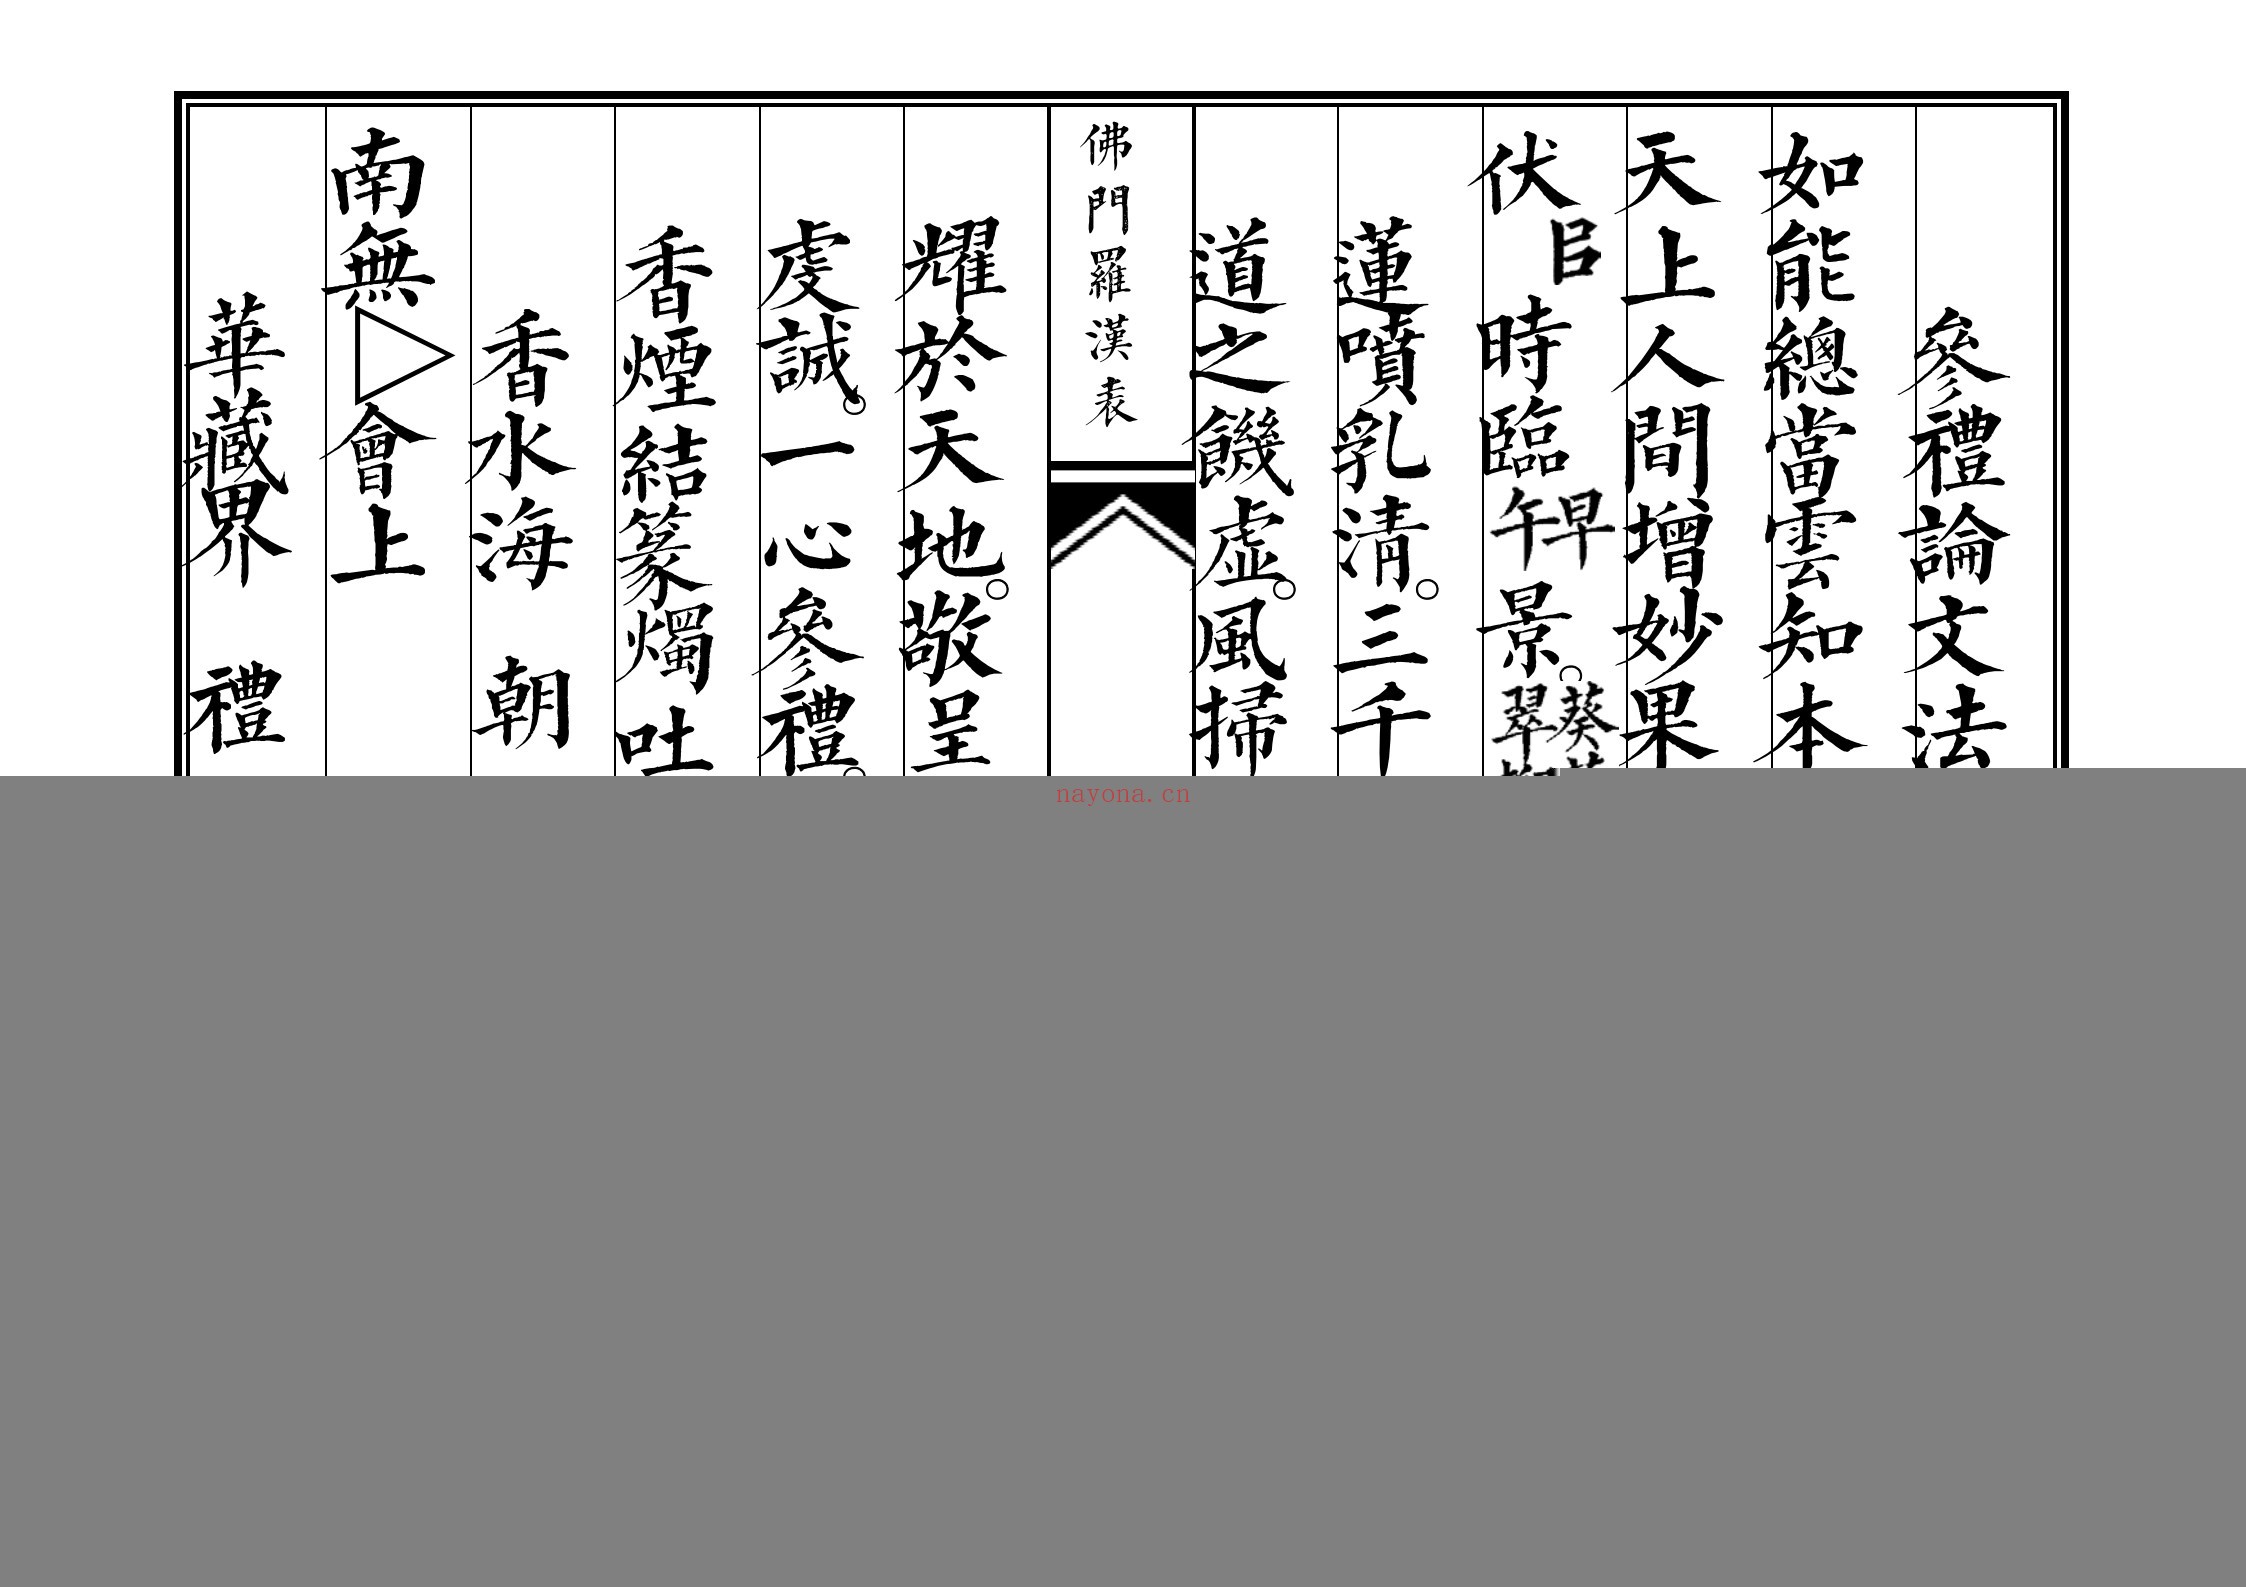 參禮論文法
如能總當雲知本
天上人間增妙果
伏㠯時臨早午景。葵翠
蓮噴乳清。三千
道之饑虛。風掃
佛門羅漢表
耀於天地。敬呈
虔誠。一心參禮。
香煙結篆燭吐
香水海 朝
南無▷會上
華藏界 禮
nayona.cn